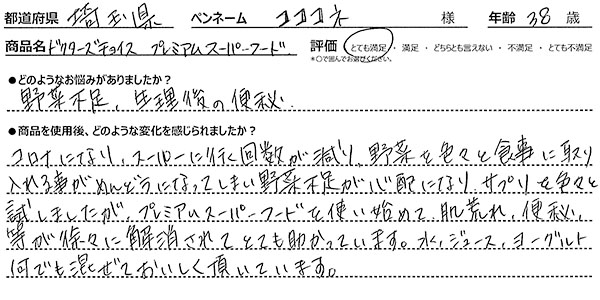 都道府県 埼玉県 ペンネーム ココココネ 様 年齢 38 歳
商品名 ドクターズチョイス プレミアムスーパーフード 評価 とても満足 ・ 満足 ・ どちらとも言えない ・ 不満足 ・ とても不満足
*○で囲んでお選びください。
●どのようなお悩みがありましたか？
野菜不足、生理後の便秘
●商品を使用後、どのような変化を感じられましたか？
コロナになり、スーパーに行く回数が減り、野菜を色々と食事に取り
入れる事がめんどうになってしまい野菜不足が心配になり、サプリを色々と
試しましたが、プレミアムスーパーフードを使い始めて、肌荒れ、便秘、
等が徐々に解消されてとても助かっています。水、ジュース、ヨーグルト
何でも混ぜておいしく頂いています。